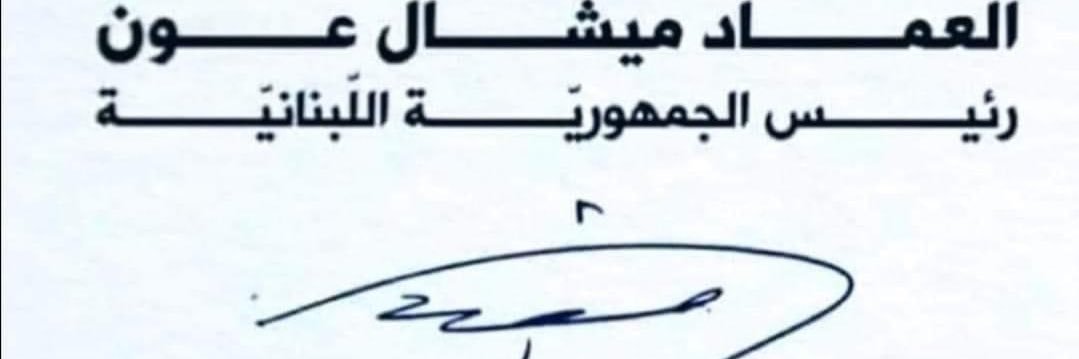 العمـــاد ميشـــال عـــون
رئيـــس الجمهوريّـــة اللّبنانيّـــة